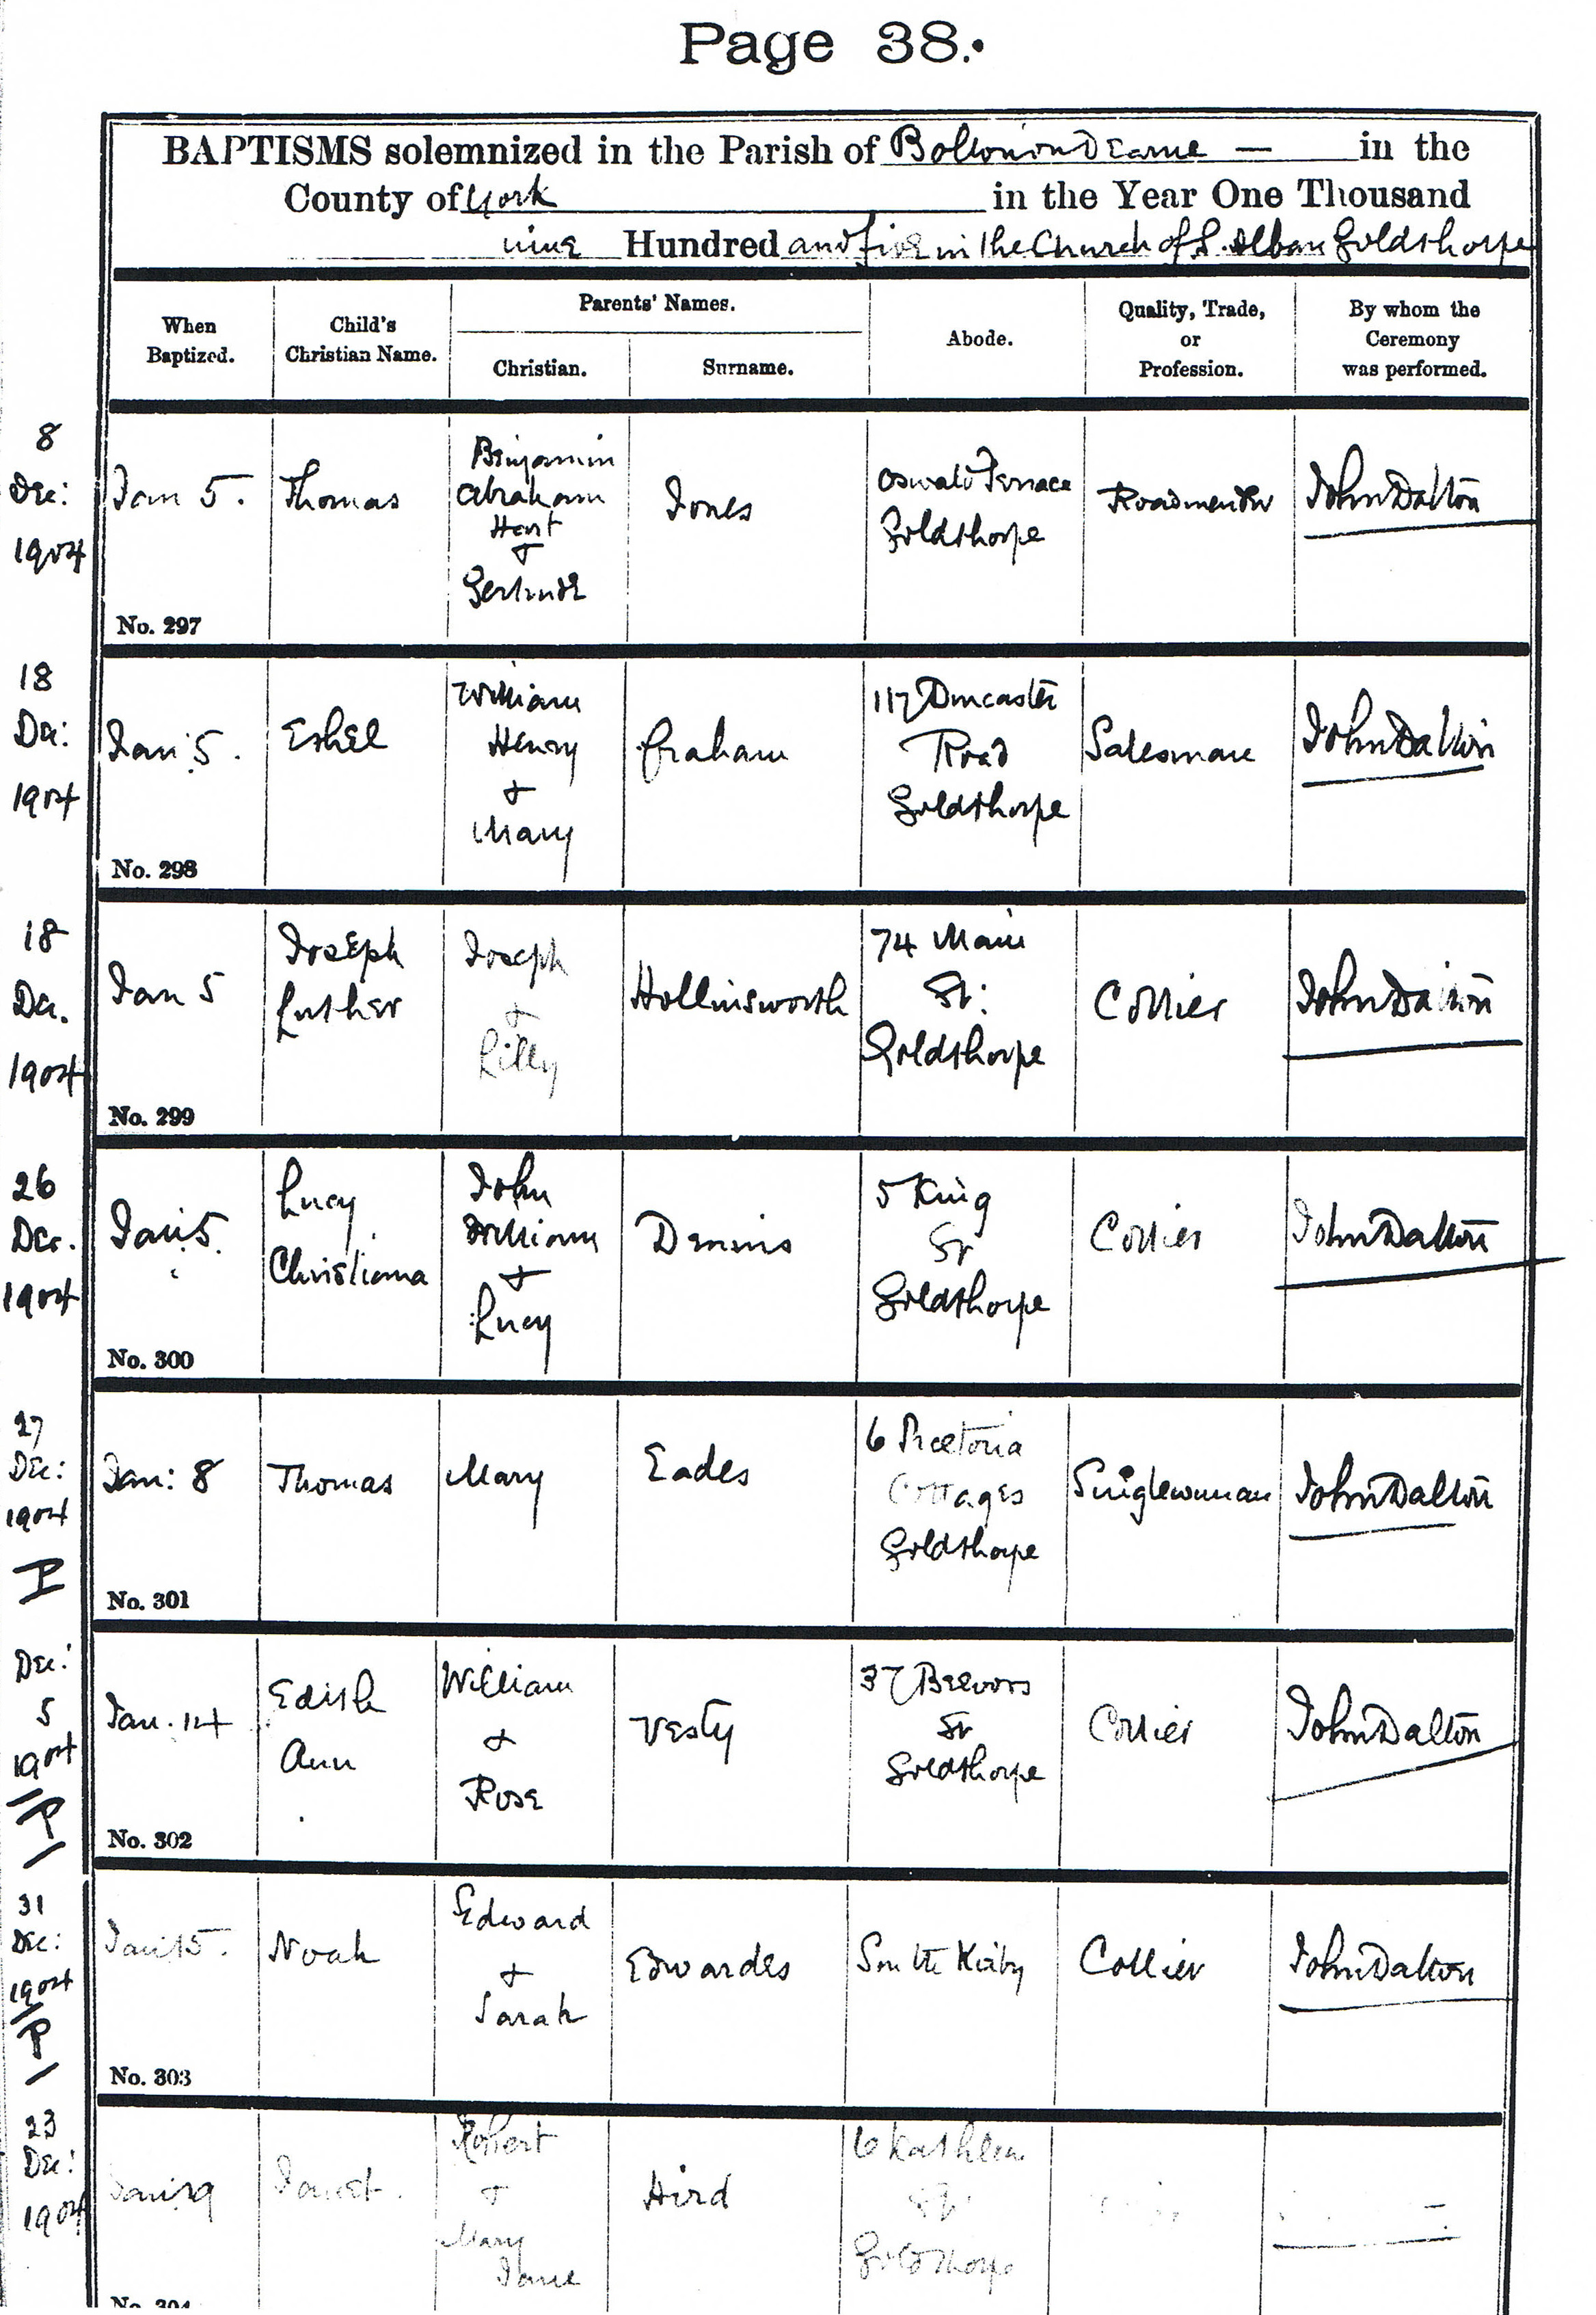 Page 38.
BAPTISMS solemnized in the Parish of Bolton on Dearne — in the
County of York in the Year One Thousand
nine Hundred and five in the Church of S. Alban Goldthorpe
When Baptized.
Child's Christian Name.
Parents' Names.
Christian.
Surname.
Abode.
Quality, Trade, or Profession.
By whom the Ceremony was performed.
8
Dec:
1904
Jan 5.
Thomas
Benjamin
Abraham
Hart
+
Gertrude
Jones
Oswald Terrace
Goldthorpe
Roadmender
John Dalton
No. 297
18
Dec:
1904
Jan: 5.
Ethel
William
Henry
+
Mary
Graham
117 Doncaster
Road
Goldthorpe
Salesman
John Dalton
No. 298
18
Dec.
1904
Jan 5
Joseph
Luther
Joseph
+
Lilly
Hollinsworth
74 Main
St:
Goldthorpe
Collier
John Dalton
No. 299
26
Dec.
1904
Jan: 5.
Lucy
Christiana
John
William
+
Lucy
Dennis
5 King
St
Goldthorpe
Collier
John Dalton
No. 300
27
Dec:
1904
Jan: 8
Thomas
Mary
Eades
6 Pretoria
Cottages
Goldthorpe
Singlewoman
John Dalton
No. 301
Dec:
5
1904
P
Jan. 14
Edith
Ann
William
+
Rose
Vesty
37 Beevors
St
Goldthorpe
Collier
John Dalton
No. 302
31
Dec:
1904
P
Jan 15.
Noah
Edward
+
Sarah
Edwardes
South Kirby
Collier
John Dalton
No. 303
23
Dec:
1904
Jan 19
Janet.
Robert
+
Mary
Jane
Hird
6 Kathleen
St:
Goldthorpe
No. 304